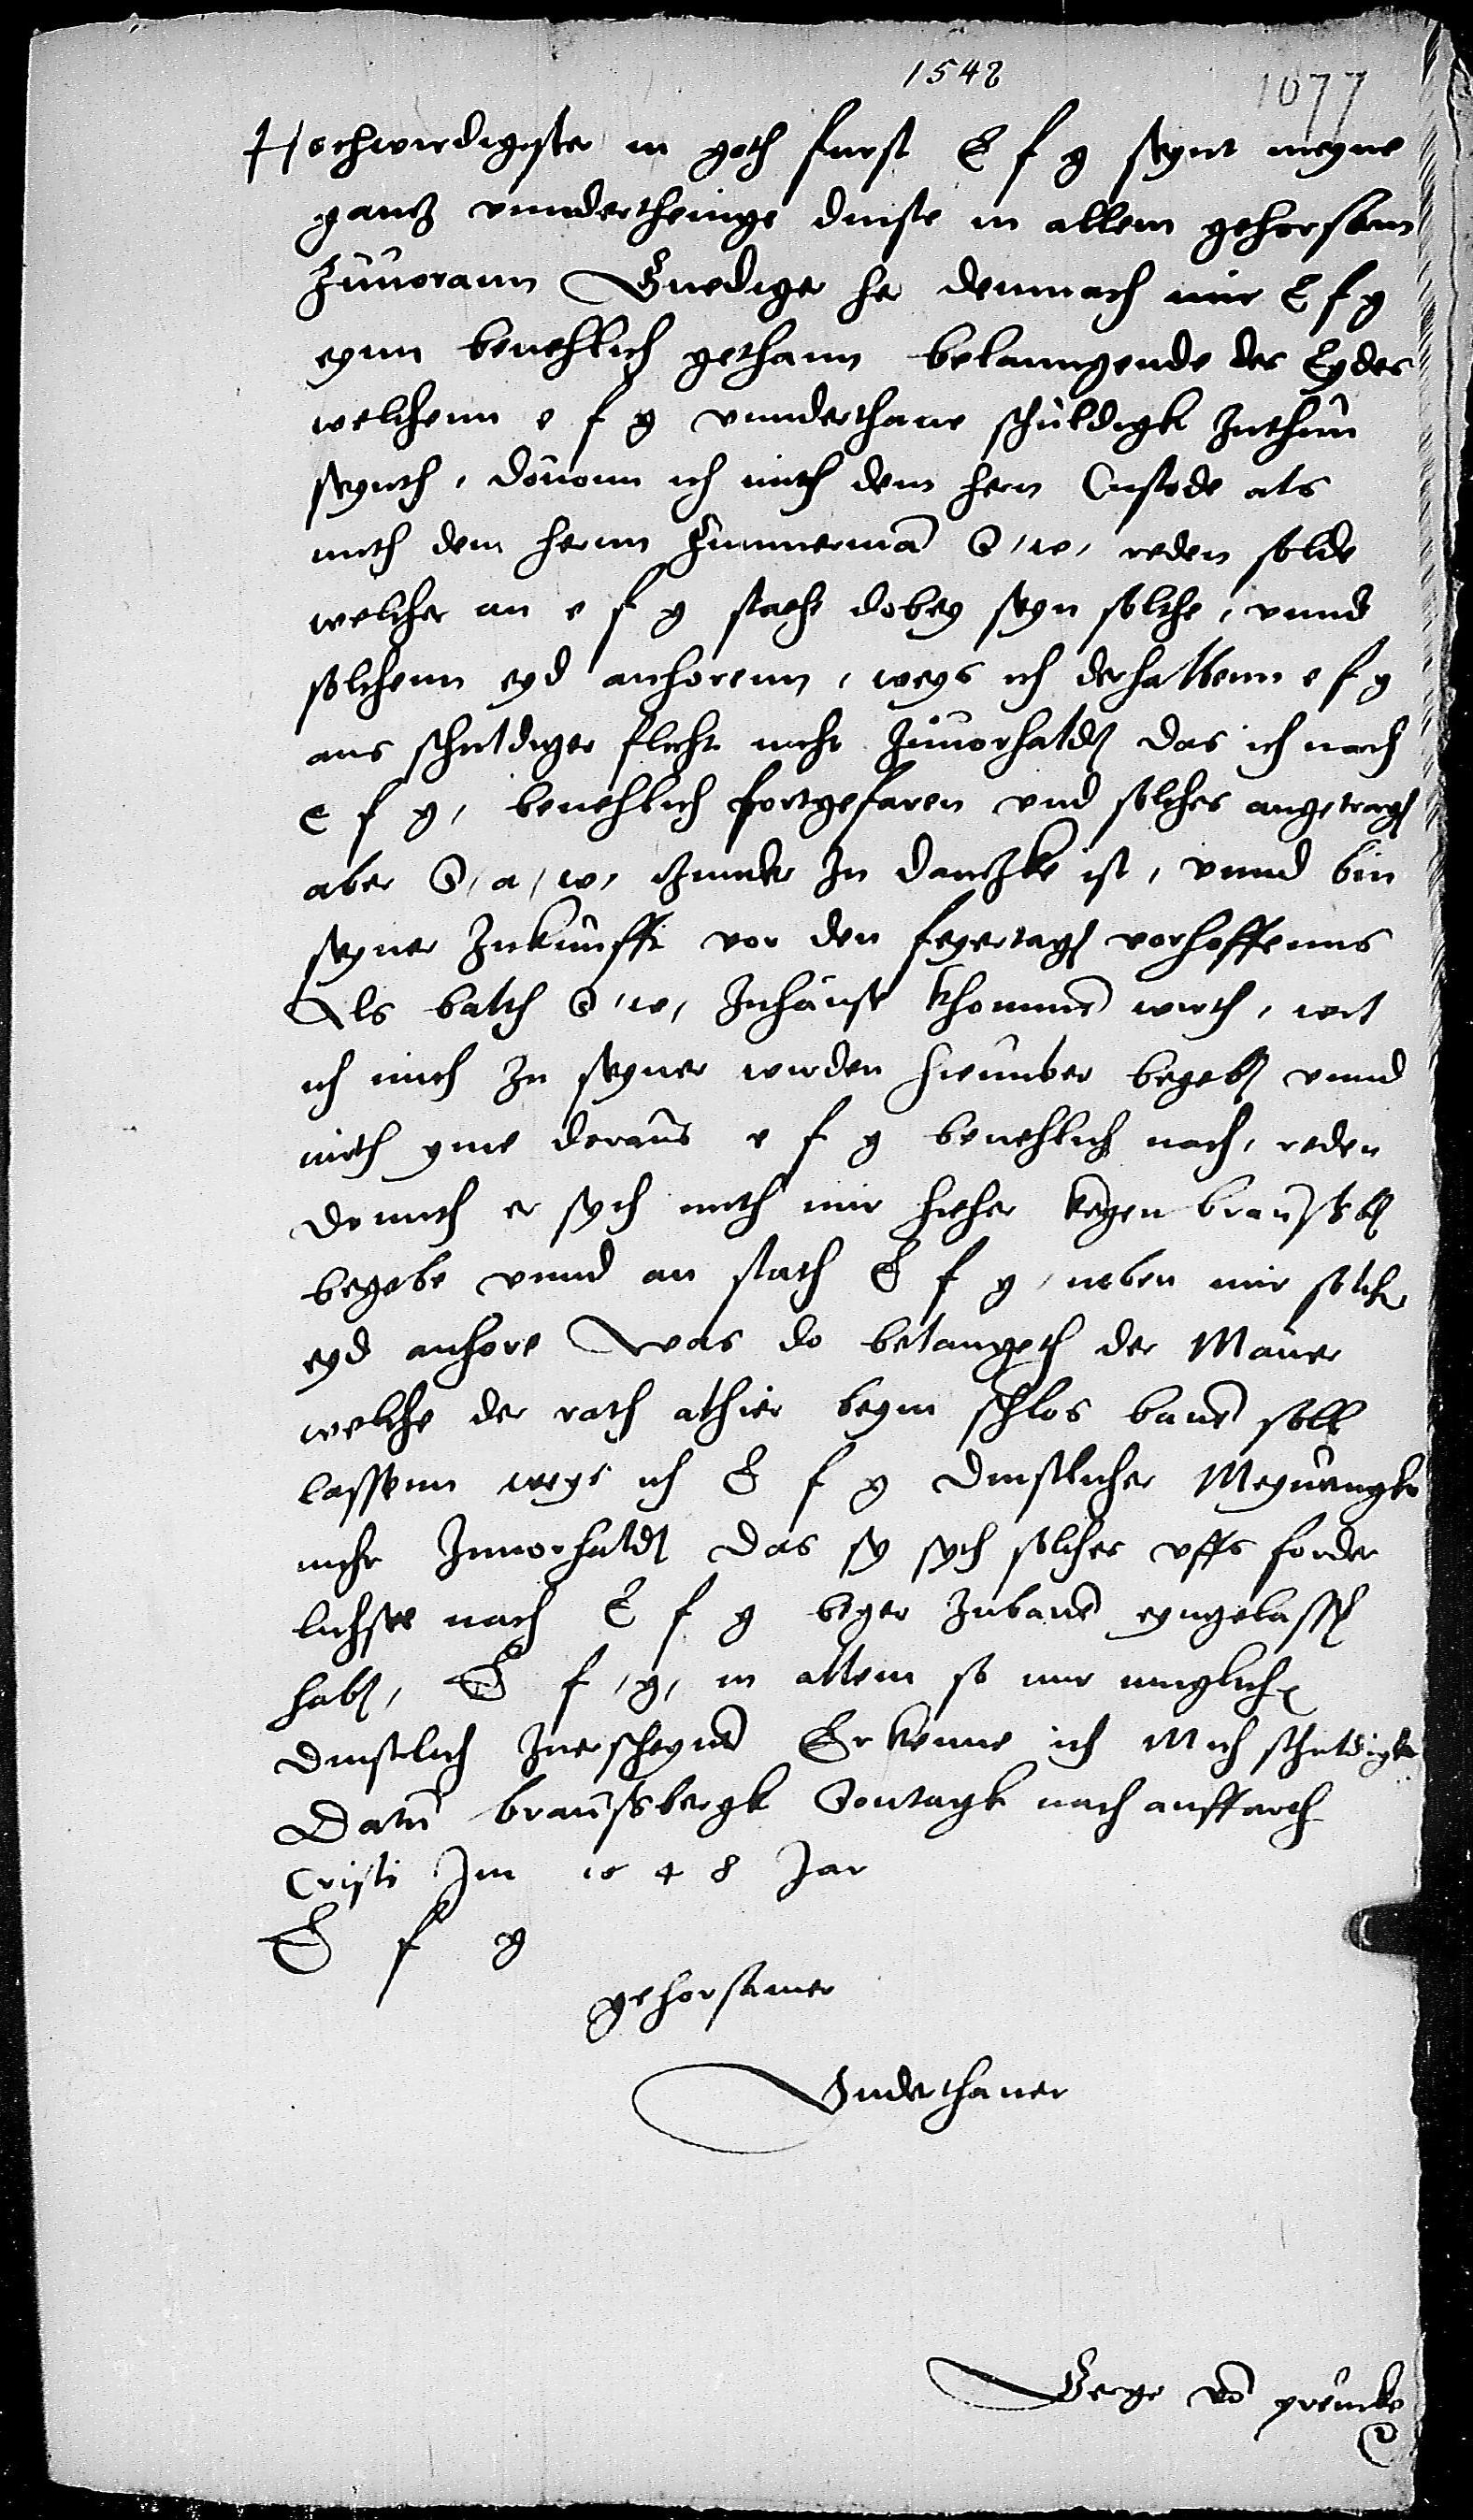 1548
1077
Hochwirdigster in goth furst E f g seynt meyne
gantz vnnderthenige dinste in allem gehorsam
Zuuorann Gnediger her demnach mir E f g
eynn beuehlich gethann belanngende des Eydes
welchenn e f g vnnderthane schuldigk Zuthun
seynth, douonn ich mith dem hern Custode als
mith dem hernn Zimmerman S, w, reden solde
welcher an e f g stadt dobey seyn solthe, vnnd
solchenn eyd anhorenn, weys ich derhalbenn e f g
aus schuldiger flicht nicht Zuuorhalden das ich nach
E f g, beuehlich fortgefaren vnd solches angetragen
aber S, a, w, itzunder Zu dantzke ist, vnnd bin
seyner Zukunfft vor den feyertagen vorhoffenns
Als balth S, w, Zuhause khommen wirth, wil
ich mich Zu seyner wirden hinunber begeben vnnd
mith yme doraus e f g beuehlich nach, reden
domith er sych mith mir hieher kegen braunsberg
begebe vnnd an stath E f g, neben mir solche
eyd anhore Was do belangeth der Mauer
welche der rath alhier beym schlos bauen soll
lassenn weys ich E f g dinstlicher Meynungk
nicht Zuuorhalden das sy sych solches vffs forder
lichste nach E f g beger Zubauen eyngelassen
haben, E f, g, in allem so mir muglichen
dinstlich Zuerscheynen Erkenne ich Mich schuldigk
Datum braunsbergk Sontagk nach auffarth
Cristi Im 1548 Jar
E f g
gehorsamer
Vnderthaner
George von preucke